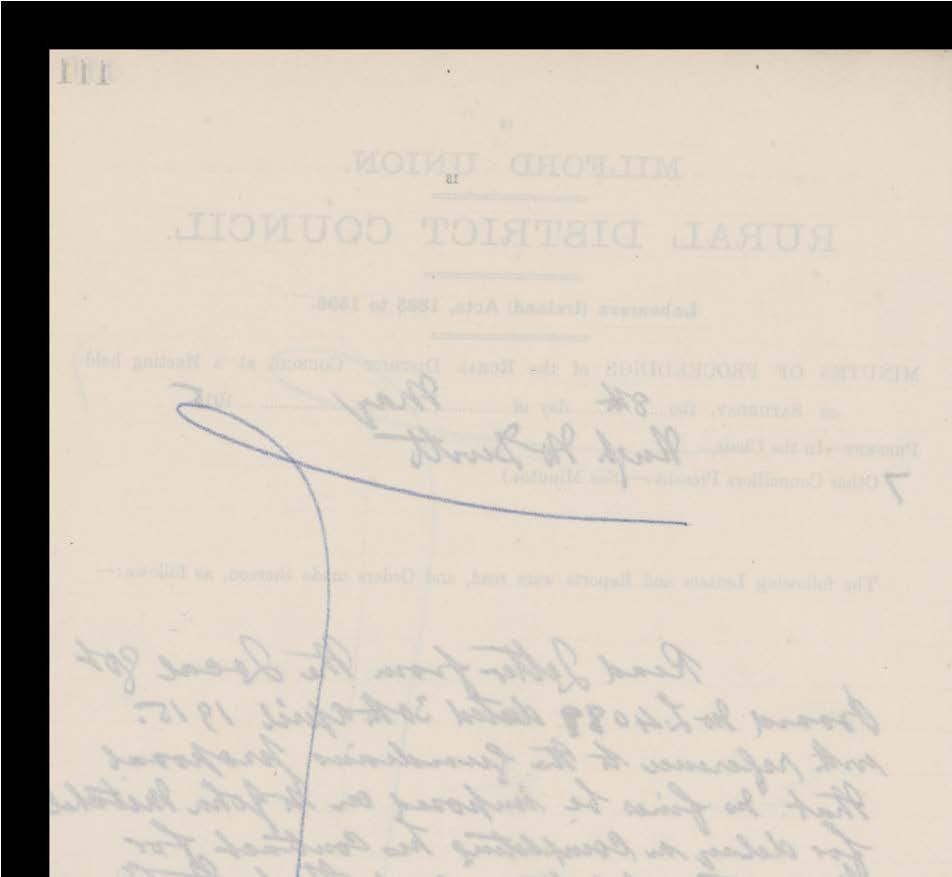 111
MILFORD UNION.
RURAL DISTRICT COUNCIL.
Labourers (Ireland) Acts, 1883 to 1896.
MINUTES OF PROCEEDINGS of the RURAL DISTRICT COUNCIL at a Meeting held
on SATURDAY, the 8th day of May 1915
PRESENT—In the Chair, Hugh
7 Other Councillors Present—(See Minutes)
The following Letters and Reports were read, and Orders made thereon, as follows:—
Read Letter from the Local Govt
Board No dated 30th April 1915.
with reference to the proposal
that no fines be imposed on Mr John Mitchell
for delay in completing his Contract for